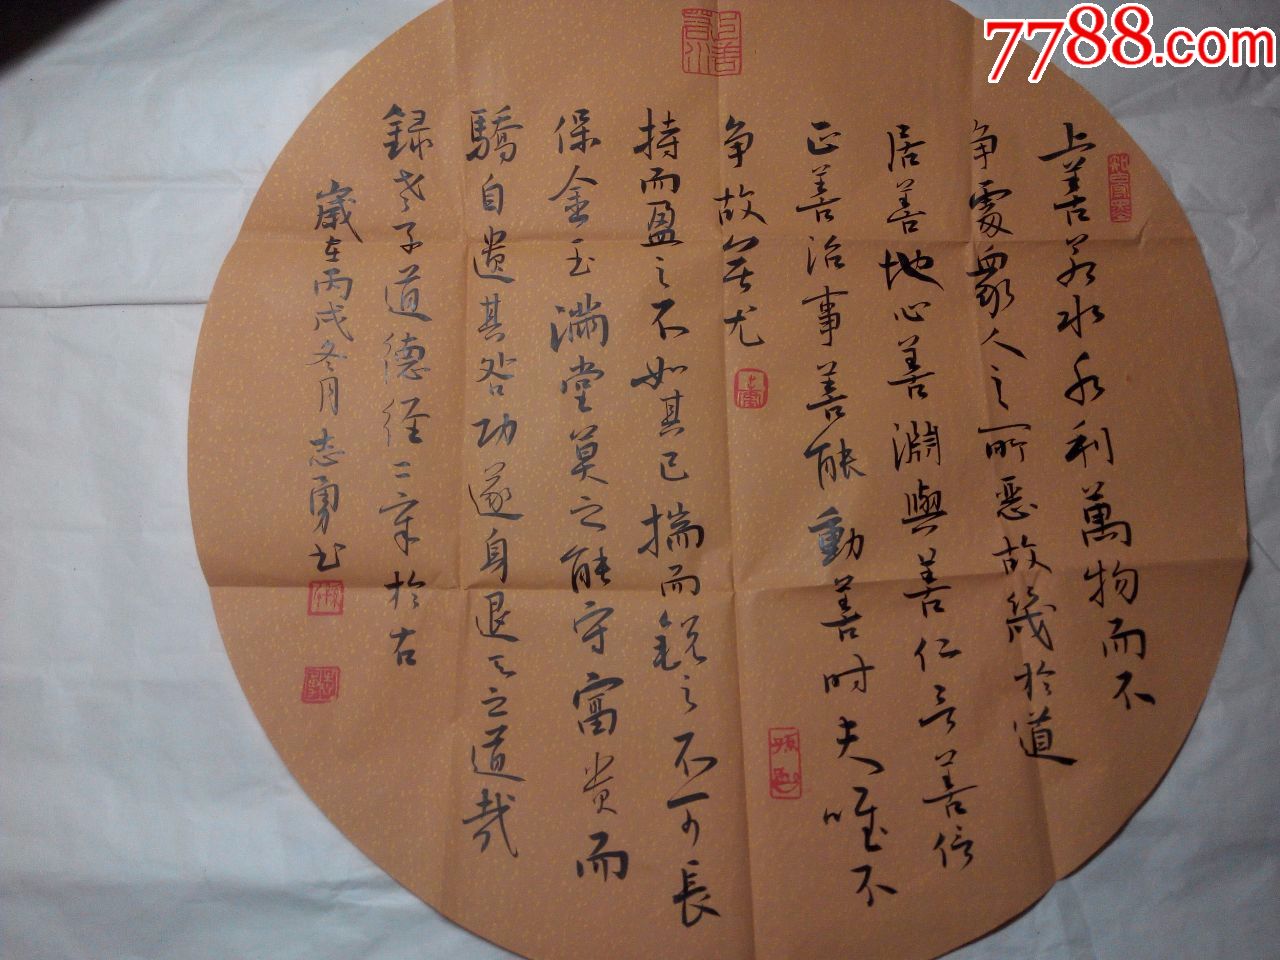 7788.com
上善若水水利萬物而不
争處衆人之所惡故幾於道
居善地心善淵與善仁言善信
正善治事善能動善时夫唯不
争故無尤
持而盈之不如其已揣而銳之不可長
保金玉满堂莫之能守富贵而
驕自遗其咎功遂身退天之道哉
録老子道德经二章於右
歲在丙戌冬月志勇书
上善若水